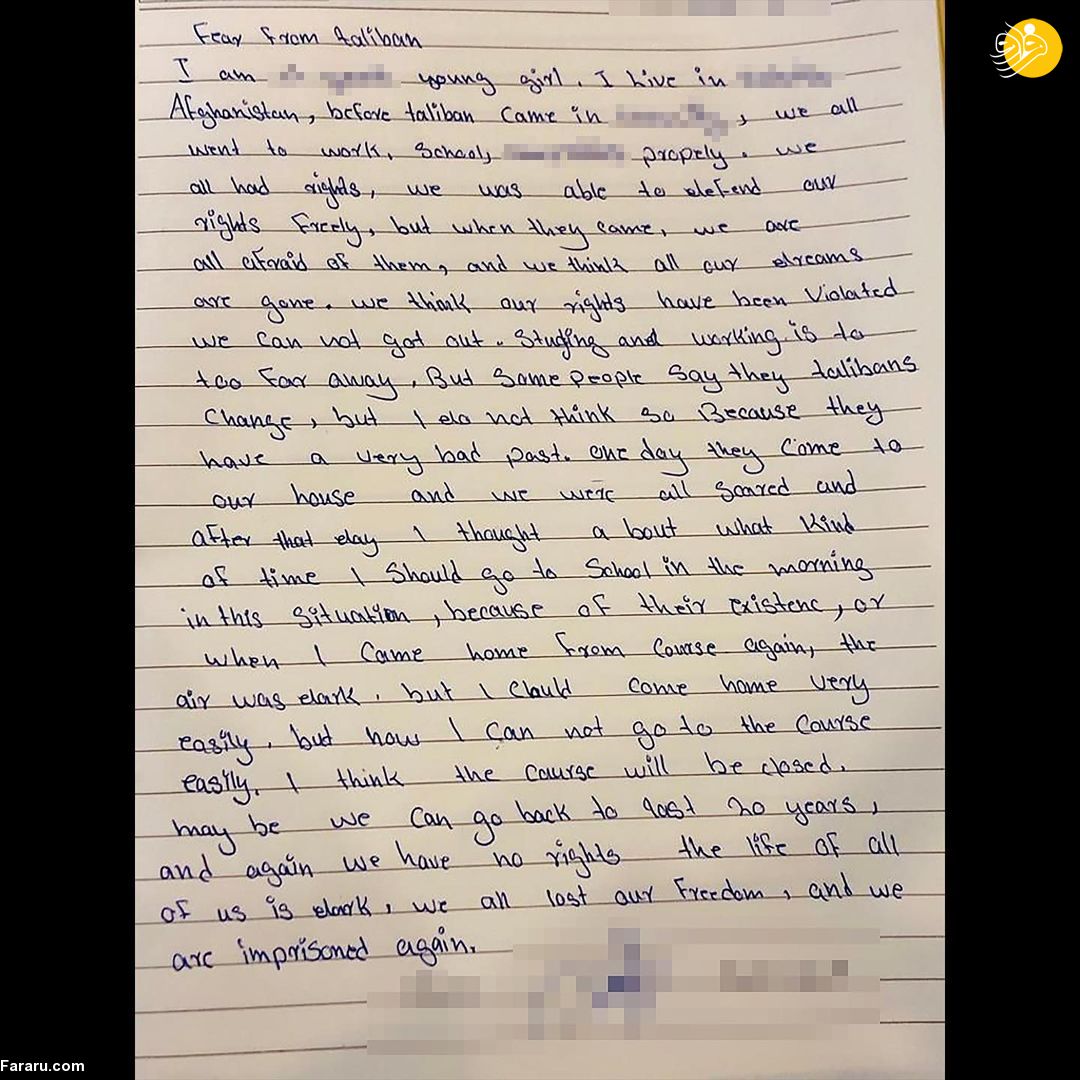 Fear from taliban
I am young girl. I Live in
Afghanistan, before taliban came in , we all
went to work, School, propely. we
all had rights, we was able to defend our
rights freely, but when they came, we are
all afraid of them, and we think all our dreams
are gone. we think our rights have been Violated
we can not got out. Studing and working is to
too far away. But Some people say they talibans
Change, but I do not think so Because they
have a very bad past. one day they come to
our house and we were all scared and
after that day I thought a bout what kind
of time I Should go to School in the morning
in this Situation, because of their existenc, or
when I came home from Course again, the
air was dark. but I Could come home very
easily. but now I can not go to the Course
easily. I think the course will be closed.
may be we can go back to last 20 years,
and again we have no rights the life of all
of us is dark, we all lost our freedom, and we
are imprisoned again.
Fararu.com